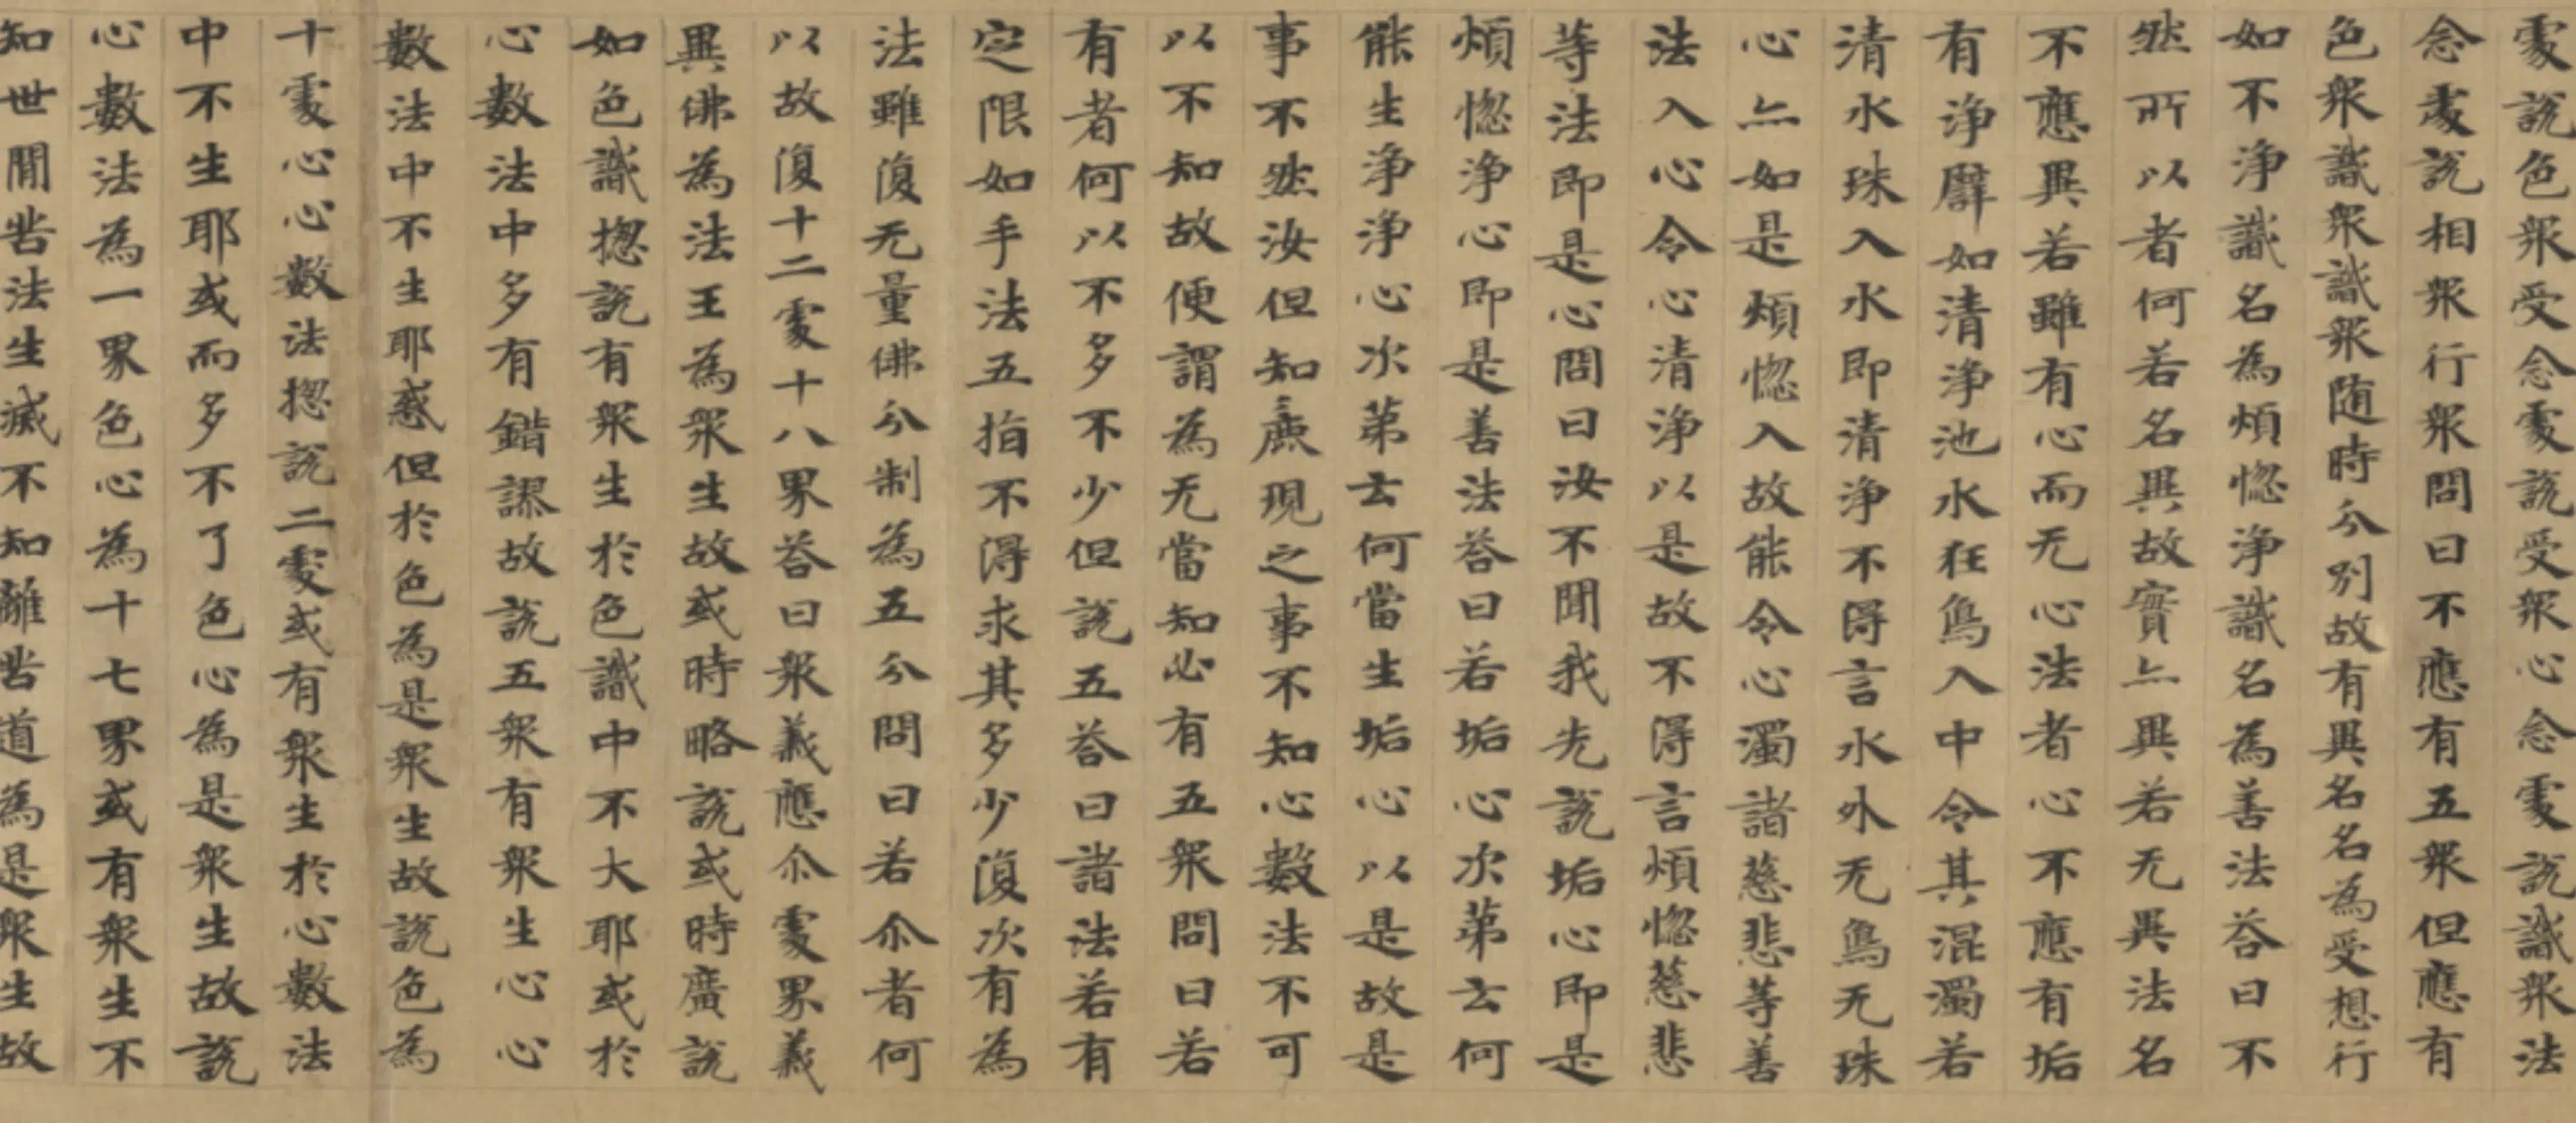 處說色衆受念處說受衆心念處說識衆法
念處說相衆行衆問曰不應有五衆但應有
色衆識衆識衆随時分別故有異名名為受想行
如不淨識名為煩惱淨識名為善法答曰不
然所以者何若名異故實亦異若无異法名
不應異若雖有心而无心法者心不應有垢
有淨譬如清淨池水狂鳥入中令其混濁若
清水珠入水即清淨不得言水外无鳥无珠
心亦如是煩惱入故能令心濁諸慈悲等善
法入心令心清淨以是故不得言煩惱慈悲
等法即是心問曰汝不聞我先說垢心即是
煩惱淨心即是善法答曰若垢心次第云何
能生淨淨心次第云何當生垢心以是故是
事不然汝但知麁現之事不知心數法不可
以不知故便謂為无當知必有五衆問曰若
有者何以不多不少但說五答曰諸法若有
定限如手法五指不得求其多少復次有為
法雖復无量佛分制為五分問曰若尒者何
以故復十二處十八界答曰衆義應尒處界義
異佛為法王為衆生故或時略說或時廣說
如色識揔說有衆生於色識中不大耶或於
心數法中多有錯謬故說五衆有衆生心心
數法中不生耶惑但於色為是衆生故說色為
十處心心數法揔說二處或有衆生於心數法
中不生耶或而多不了色心為是衆生故說
心數法為一界色心為十七界或有衆生不
知世間苦法生滅不知離苦道為是衆生故